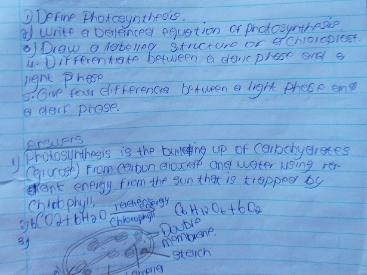 1) Define Photosynthesis.
2) Write a balanced equation of photosynthesis
3) Draw a labeling structure of a chloroplast.
4. Differentiate between a dark phase and a
light Phase
5. Give four differences between a light phase and
a dark phase.
answers
1) Photosynthesis is the building up of Carbohydrates
(glucose) from carbon dioxide and water using
energy from the sun that is trapped by
chlorophyll,
2) 6CO2 + 6H2O energy chlorophyll C6H12O6 + 6O2
3)
Double
membrane
starch
lamella